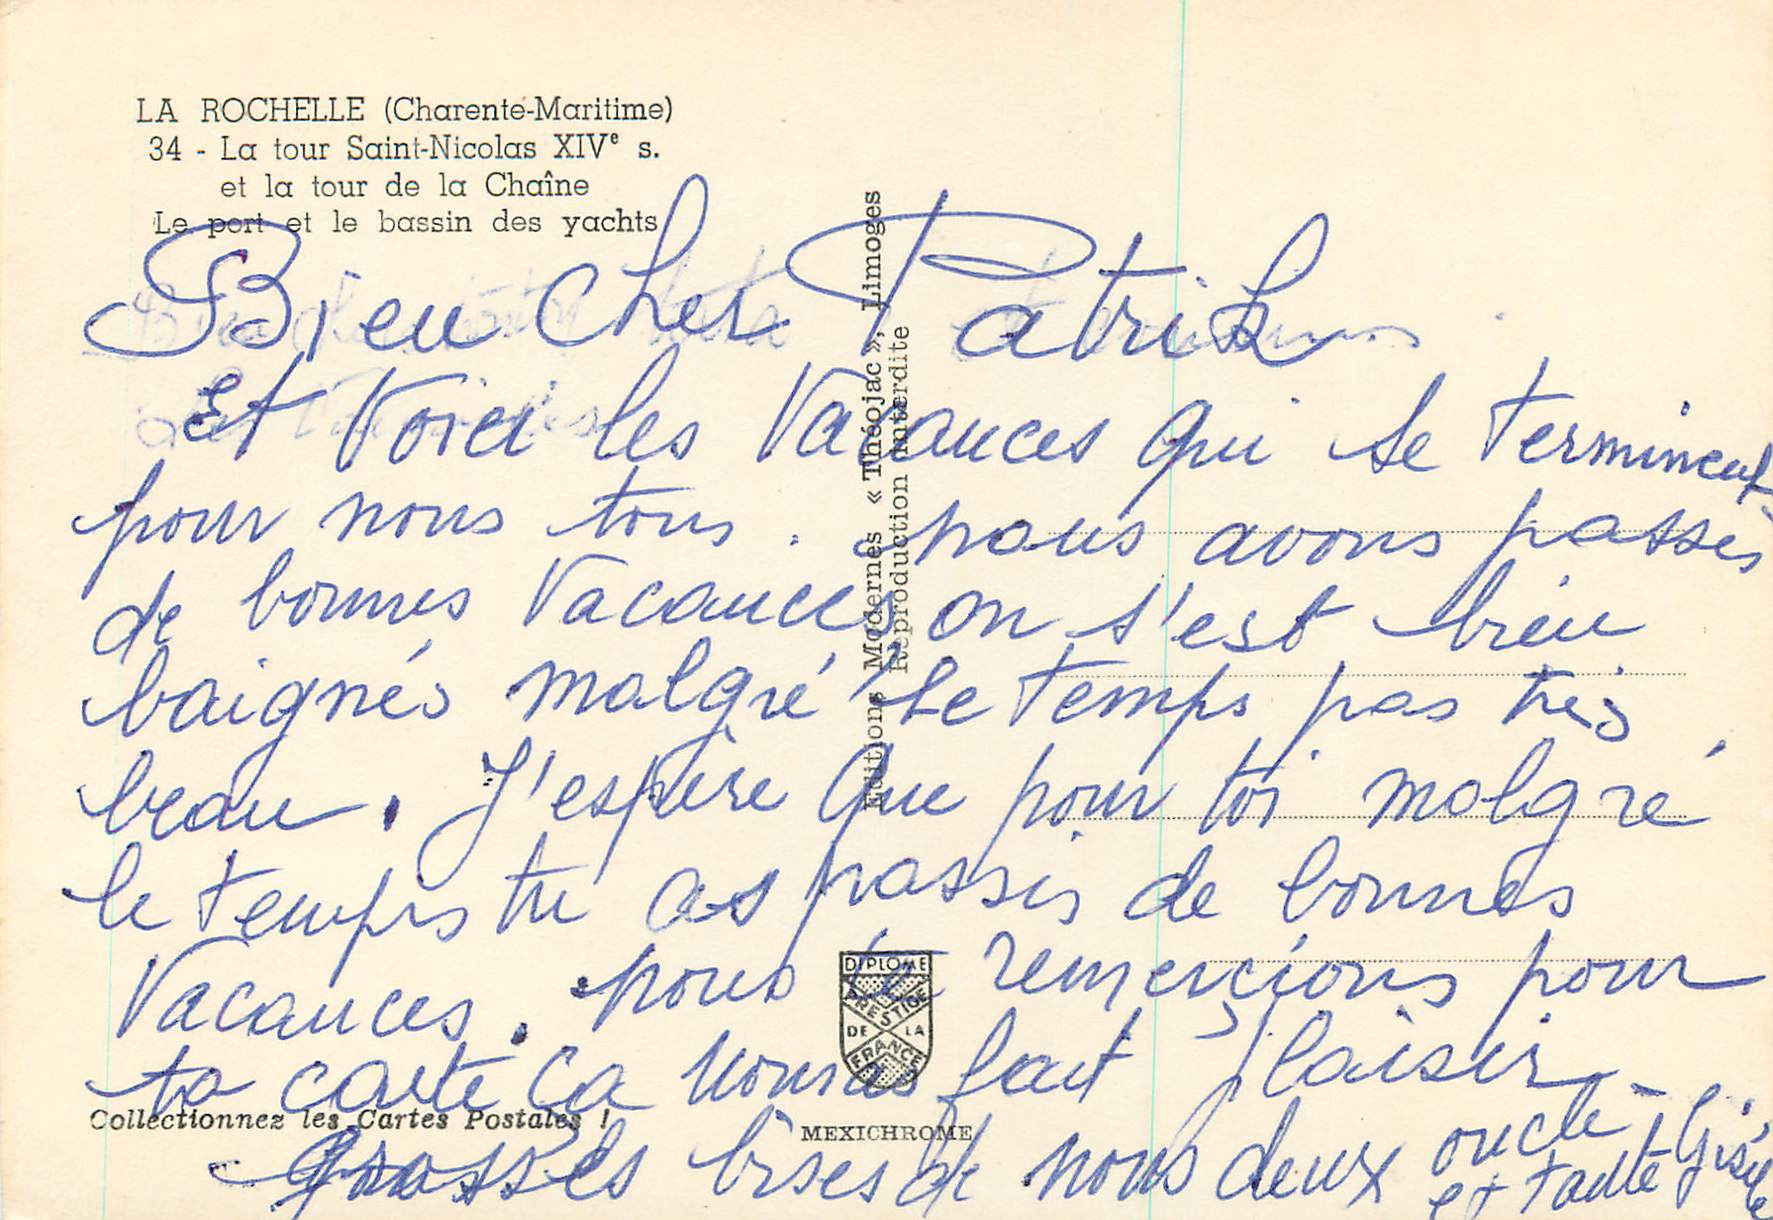 LA ROCHELLE (Charente-Maritime)
34 - La tour Saint-Nicolas XIVe s.
et la tour de la Chaîne
Le port et le bassin des yachts
Bien cher Patrik
Et Voici les Vacances qui se terminent
pour nous tous. nous avons passés
de bonnes Vacances on s'est bien
baignés malgré le temps pas très
beau. J'espère que pour toi malgré
le temps tu as passés de bonnes
Vacances. nous te remerçions pour
ta carte ça nous as fait plaisir
Grosses bises de nous deux oncle
et tante Gisèle
Editions Modernes « Théojac », Limoges
Reproduction interdite
DIPLOME
PRESTIGE
DE LA
FRANCE
Collectionnez les Cartes Postales !
MEXICHROME